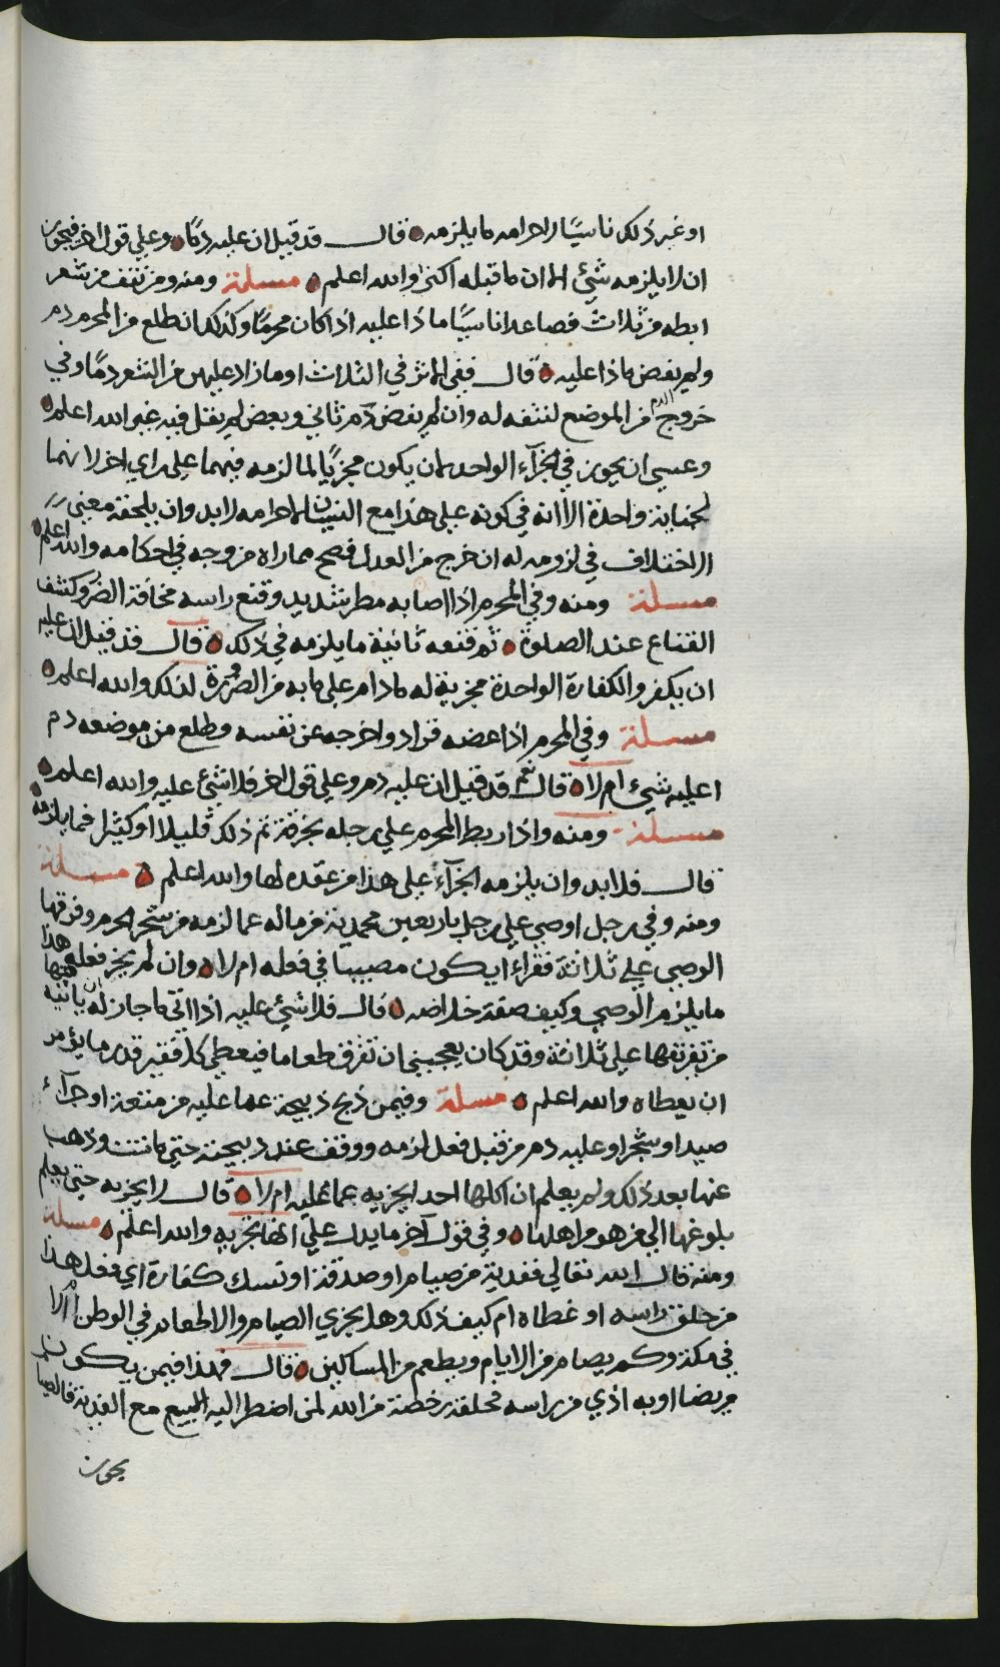 او غير ذلك ناسيًا لاحرامه ما يلزمه قال قد قيل ان عليه دمًا وعلي قول اخر فيجوز
ان لا يلزمه شيئ الا ان ما قبله اكثر والله اعلم مسئلة ومنه ومن نتف من شعر
ابطه من ثلاث فصاعدا ناسيًا ماذا عليه اذا كان محرمًا وكذلك ان طلع من المحرم دم
ولم يفض ماذا عليه قال ففي الاثر في الثلاث او ما زاد عليهن من الشعر دمًا وفي
خروج الدم من الموضع لنتفه له وان لم يفض دم ثاني وبعض لم يقل فيه غير الله اعلم
وعسي ان يجوز في الجزآء الواحد ان يكون مجزيًا لما لزمه فيهما علي راي اخر لانهما
لجناية واحدة الا انه في كونه علي هذا مع النسيان لاحرامه لا بد وان يلحقه معني
الاختلاف في لزومه له ان خرج من العدل فصح مما راه خروجه في احكامه والله اعلم
مسئلة ومنه وفي المحرم اذا اصابه مطر شديد وقنع راسه مخافة الضر وكشف
القناع عند الصلوة ثم قنعه ثانية ما يلزمه في ذلك قال قد قيل ان عليه
ان يكفر والكفارة الواحدة مجزية له ما دام علي ما به من الضرورة لذلك والله اعلم
مسئلة وفي المحرم اذا عضه قراد واخرجه عن نفسه وطلع من موضعه دم
اعليه شيئ ام لا قال نعم قد قيل ان عليه دم وعلي قول اخر فلا شيئ عليه والله اعلم
مسئلة ومنه واذا ربط المحرم علي رجله بخرقة ثم ذلك قليلا او كثيرا فما يلزمه
قال فلا بد وان يلزمه الجزآء علي هذا من عقده لها والله اعلم مسئلة
ومنه وفي رجل اوصي علي رجل باربعين محمدية من ماله عما لزمه من شجر الحرم وفرقها
الوصي علي ثلاثة فقراء ايكون مصيبا في فعله ام لا وان لم يجز فعله هذا فيها
ما يلزم الوصي وكيف صفة خلاصه قال فلا شيئ عليه اذا اتي ما جاز له ان ياتيه
من تفرقها علي ثلاثة وقد كان يعجبني ان تفرق طعاما فيعطي كل فقير قدر ما يؤمر
ان يعطاه والله اعلم مسئلة وفيمن ذبح ذبيحة عما عليه من متعة او جزآء
صيد او شجر او عليه دم من قبل فعل لزمه ووقف عند ذبيحته حتي ماتت وذهب
عنها بعد ذلك ولم يعلم ان اكلها احد ايجزيه عما عليه ام لا قال لا يجزيه حتي يعلم
بلوغها الي من هو من اهلها وفي قول آخر ما يدل علي انها تجزيه والله اعلم مسئلة
ومنه قال الله تعالي ففدية من صيام او صدقة او نسك كفارة اي فعل هذا
من حلق راسه او غطاه ام كيف ذلك وهل يجزي الصيام والاطعام في الوطن ام لا
في مكة وكم يصام من الايام ويطعم من المساكين قال فهذا فيمن يكون
مريضا او به اذي من راسه فحلقه رخصة من الله لمن اضطر اليه ابيح مع الفدية فالصيام
يجوز